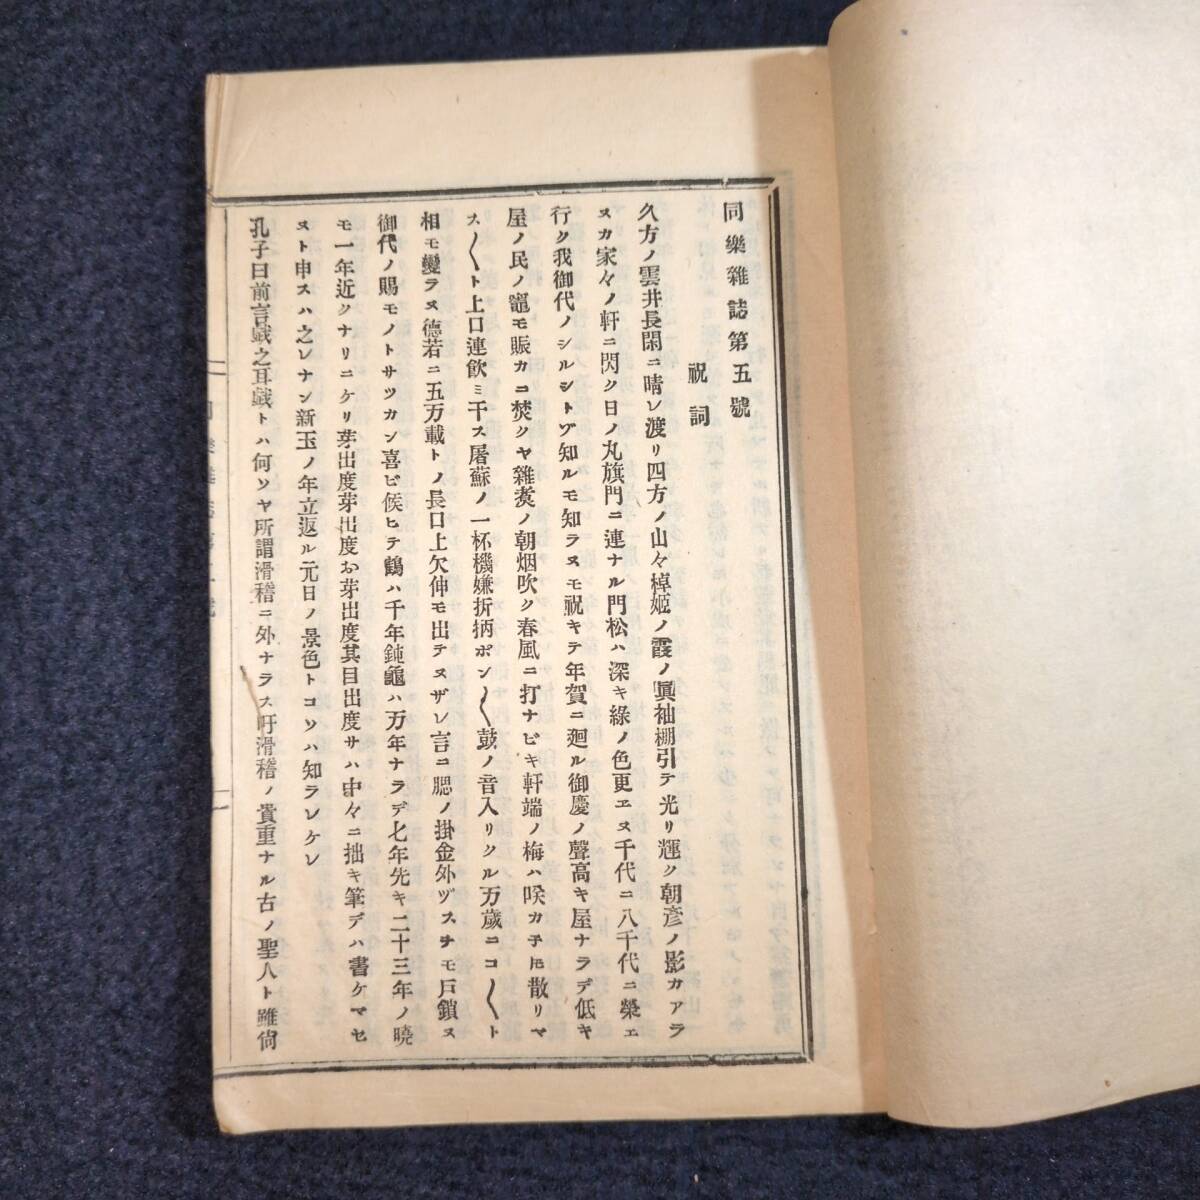 同樂雜誌第五號
祝詞
久方ノ雲井長閑ニ晴レ渡リ四方ノ山々棹姬ノ霞ノ眞袖棚引テ光リ輝ク朝彥ノ影カアラ
ヌカ家々ノ軒ニ閃ク日ノ丸旗門ニ連ナル門松ハ深キ綠ノ色更エヌ千代ニ八千代ニ榮エ
行ク我御代ノシルシトゾ知ルモ知ラヌモ祝キテ年賀ニ廻ル御慶ノ聲高キ屋ナラデ低キ
屋ノ民ノ竈モ賑カニ焚クヤ雜煑ノ朝烟吹ク春風ニ打ナビキ軒端ノ梅ハ咲カ子𪜈散リマ
ス〱ト上口連飮ミ干ス屠蘇ノ一杯機嫌折柄ポン〱鼓ノ音入リクル万歲ニコ〱ト
相モ變ラヌ德若ニ五万載トノ長口上欠伸モ出テヌザレ言ニ腮ノ掛金外ヅスチモ戸鎖ヌ
御代ノ賜モノトサツカン喜ビ候ヒテ鶴ハ千年鈍龜ハ万年ナラデ七年先キ二十三年ノ曉
モ一年近クナリニケリ芽出度芽出度お芽出度其目出度サハ中々ニ拙キ筆デハ書ケマセ
ヌト申スハ之レナン新玉ノ年立返ル元日ノ景色トコソハ知ラレケレ
孔子曰前言戯之耳戯トハ何ソヤ所謂滑稽ニ外ナラス吁滑稽ノ貴重ナル古ノ聖人ト雖尙